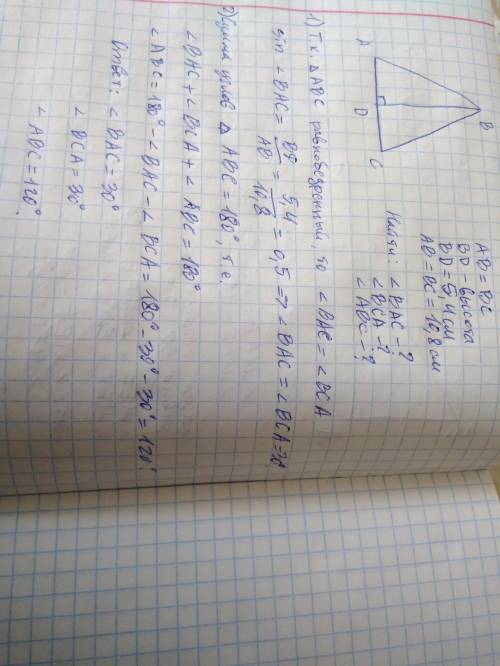 B
A
D
C
AB = BC
BD - высота
BD = 5,4 см
AB = BC = 10,8 см
Найти: ∠BAC - ?
∠BCA - ?
∠ABC - ?
1) Т.к. △ABC равнобедренный, то ∠BAC = ∠BCA
sin ∠BAC = BD/AB = 5,4/10,8 = 0,5 => ∠BAC = ∠BCA = 30°
2) Сумма углов △ABC = 180°, т.е.
∠BAC + ∠BCA + ∠ABC = 180°
∠ABC = 180° - ∠BAC - ∠BCA = 180° - 30° - 30° = 120°
Ответ: ∠BAC = 30°
∠BCA = 30°
∠ABC = 120°.